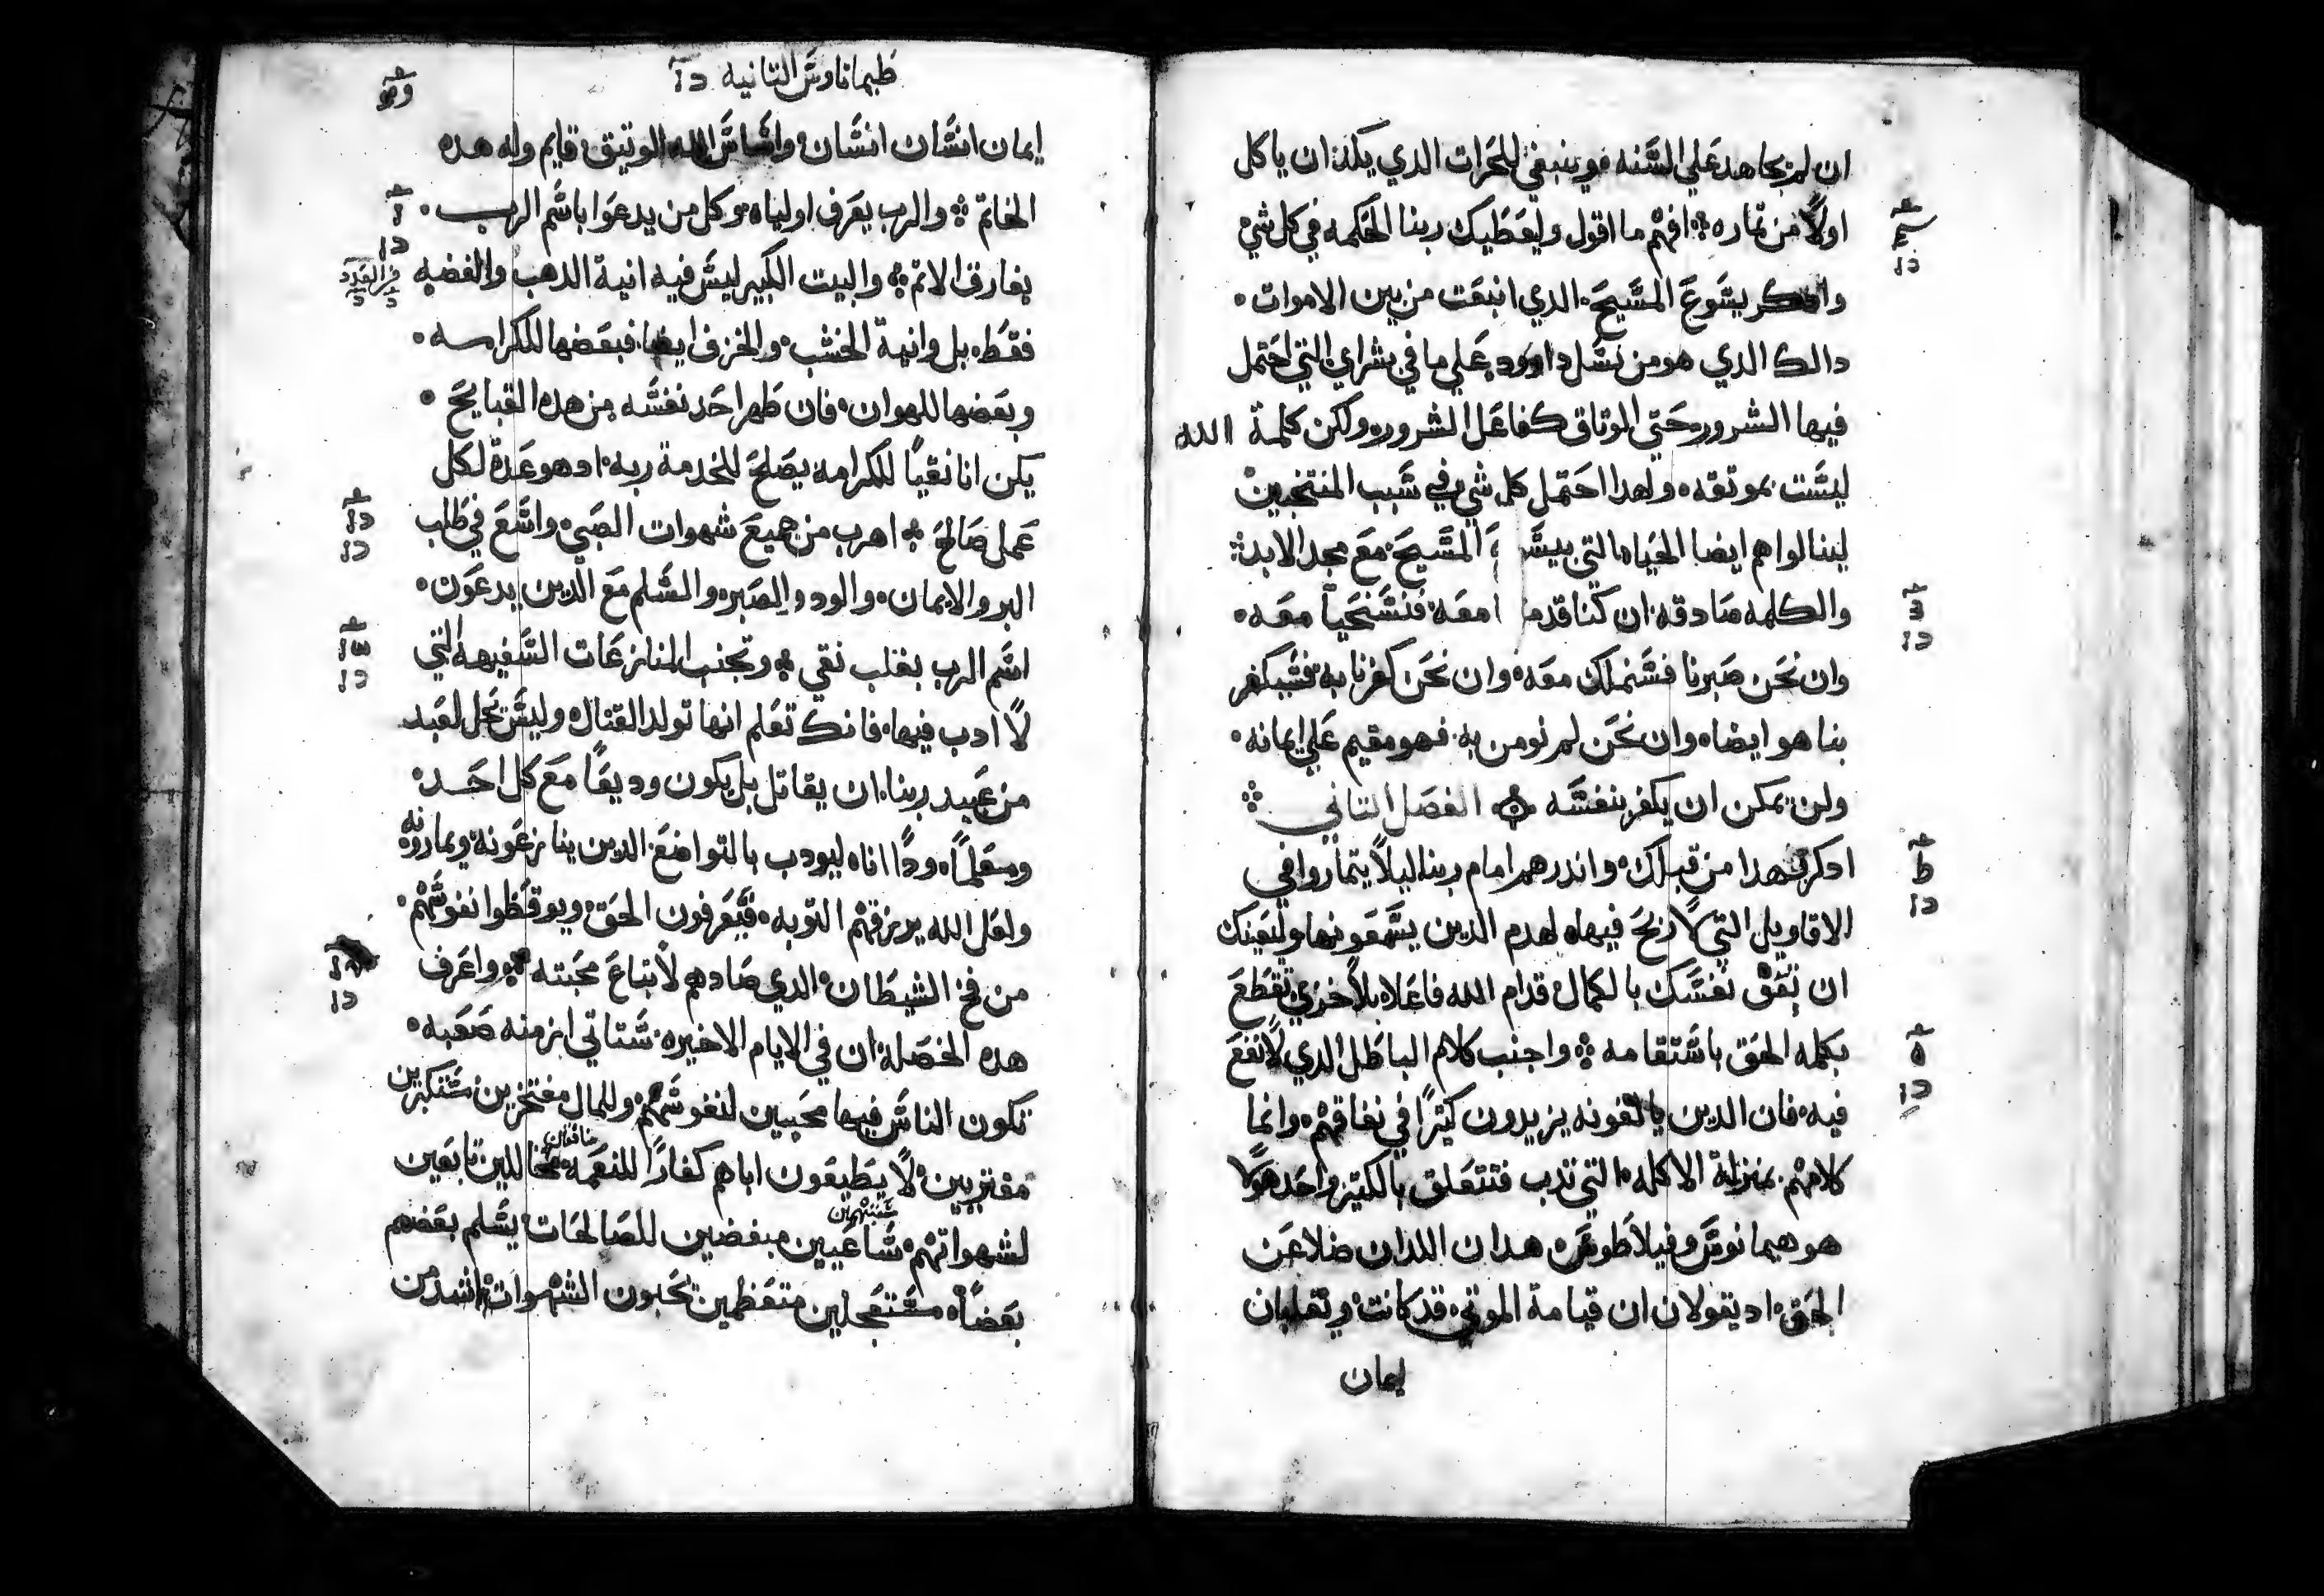 ان لم يجاهد علي السنه وينبغي للحرات الدي يكد ان ياكل
اولاً من تماره افهم ما اقول وليعطيك ربنا الحكمه في كل شي
وادكر يسوع المسيح الدي انبعت من بين الاموات
دالك الدي هو من نسل داوود علي ما في بشراي التي احتمل
فيها الشرور حتي الوتاق كفاعل الشرور ولكن كلمة الله
ليست بموتقه ولهدا احتمل كل شي في سبب المنتخبين
لينالوا هم ايضا الحياه التي المسيح مع مجد الابد
والكلمه صادقه ان كنا قد معه فسنحيا معه
وان نحن صبرنا فسنملك معه وان نحن كفرنا به فسيكفر
بنا هو ايضا وان نحن لم نومن به فهو مقيم علي ايمانه
ولن يمكن ان يكفر بنفسه الفصل التاني
ادكرهم هدا من قبلك واندرهم امام ربنا ليلاً يتماروا في
الاقاويل التي لا ربح فيها لهدم الدين يسمعونها وليعينك
ان تقف نفسك بالكمال قدام الله فاعلا بلا خزي تقطع
بكلمه الحق باستقامه واجنب كلام الباطل الدي لا نفع
فيه فان الدين يالفونه يزيدون كتيرًا في نفاقهم وانما
كلامهم بمنزلة الاكله التي تدب فتتعلق بالكتير واحد هولا
هو هيمانوس وفيلاطوس هدان اللدان ضلا عن
الحق اد يقولان ان قيامة الموتي قد كانت ويقلبان
ايمان
طيماتاوس التانيه
ايمان انسان انسان واساس الله الوتيق قايم وله هده
الخاتم والرب يعرف اولياه وكل من يدعوا باسم الرب
يفارق الاتم والبيت الكبير ليس فيه انية الدهب والفضه
فقط بل وانية الخشب والخزف ايضا فبعضها للكرامه
وبعضها للهوان فان طهر احد نفسه من هده القبايح
يكن انا نقياً للكرامه يصلح للخدمة ربه اد هو عدة لكل
عمل صالح اهرب من جميع شهوات الصبي واسع في طلب
البر والايمان والود والصبر والسلم مع الدين يدعون
اسم الرب بقلب نقي وتجنب المنازعات السفيهه التي
لا ادب فيها فانك تعلم انها تولد القتال وليس يحل لعبد
من عبيد ربنا ان يقاتل بل يكون وديعًا مع كل احد
ومعلماً ودًا اناه ليودب بالتواضع الدين ينازعونه ويمارونه
ولعل الله يرزقهم التوبه فيعرفون الحق ويوقظوا نفوسهم
من فخ الشيطان الدي صادهم لاتباع محبته واعرف
هده الخصله ان في الايام الاخيره ستاتي ازمنه صعبه
تكون الناس فيها محبين لنفوسهم وللمال مفتخرين ستكبرين
مفتريين لا يطيعون اباهم كفارًا للنعمه منافقين مخالدين تابعين
لشهواتهم ساعيين مبغضين للصالحات يسلم بعضهم
بعضاً مستعجلين متعظمين يحبون الشهوات اشد من